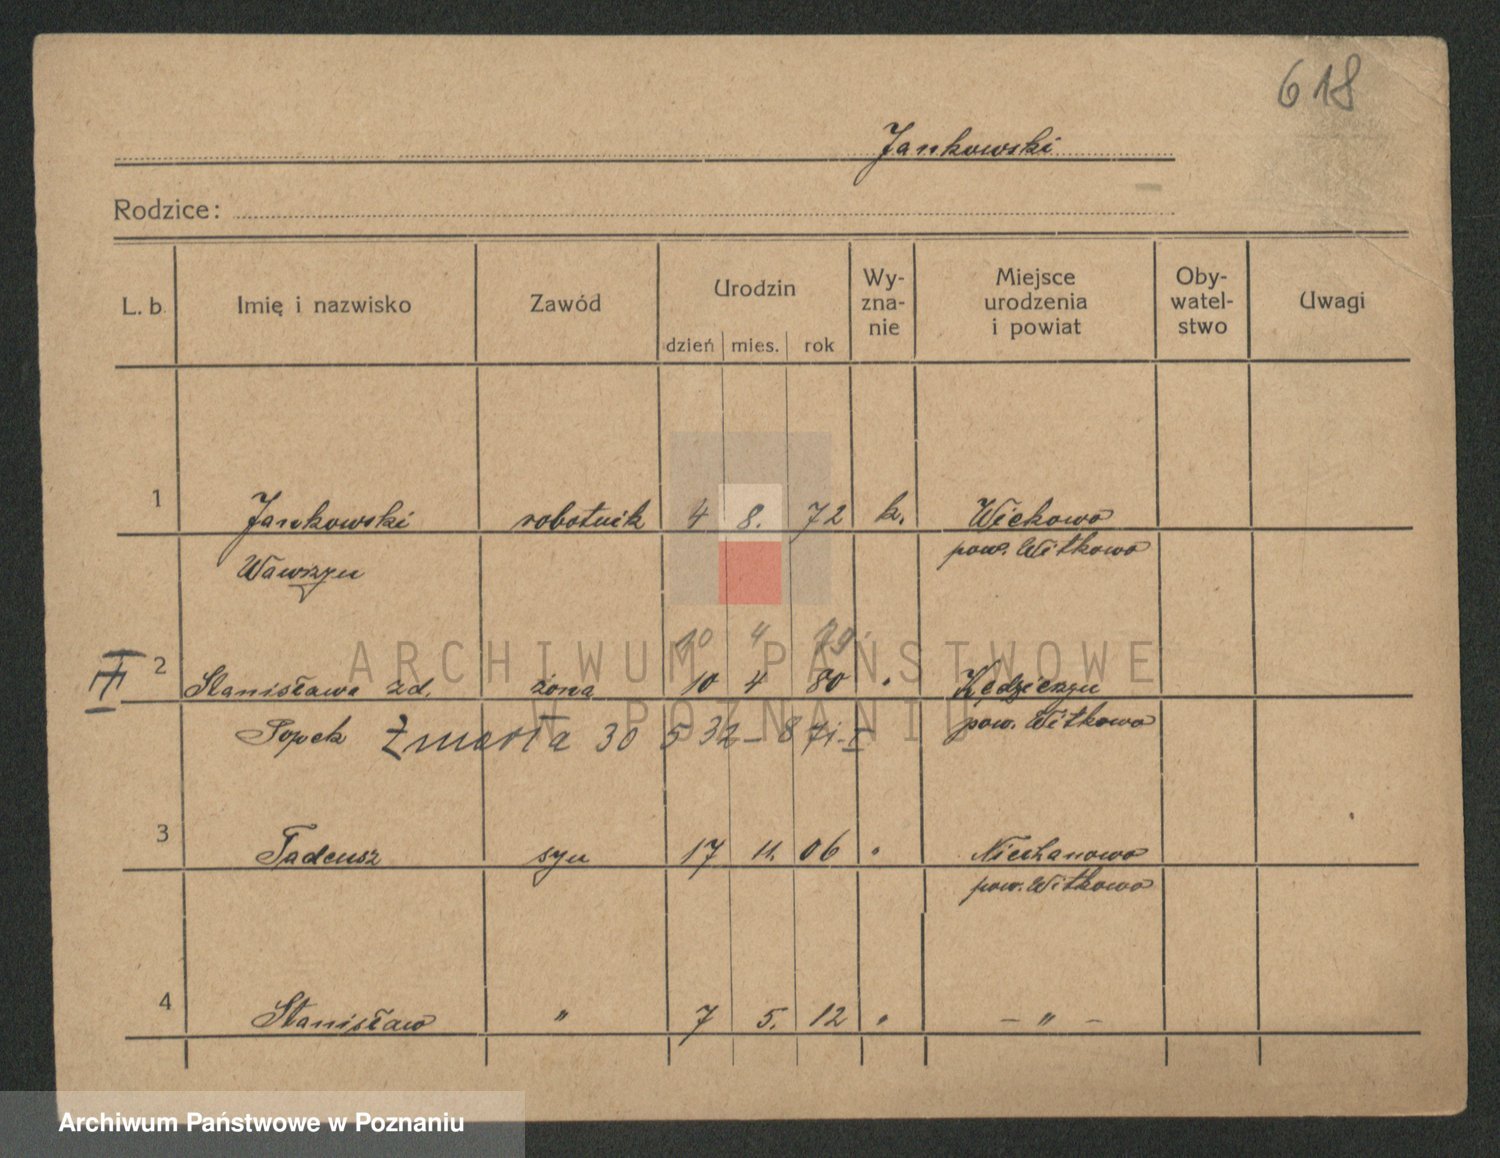 618
Jankowski
Rodzice:
L. b. Imię i nazwisko Zawód Urodzin dzień mies. rok Wy-zna-nie Miejsce urodzenia i powiat Oby-watel-stwo Uwagi
1 Jankowski robotnik 4 8. 72 k. Wiekowo
Wawrzyn pow. Witkowo
10 4 79
2 Stanisława zd. żona 10 4 80 " Kędzierzyn
Topek Zmarła 30 5 32 - 8 pow. Witkowo
3 Tadeusz syn 17 11. 06 " Niechanowo
pow. Witkowo
4 Stanisław " 7 5. 12 " - " -
ARCHIWUM PAŃSTWOWE
W POZNANIU
Archiwum Państwowe w Poznaniu